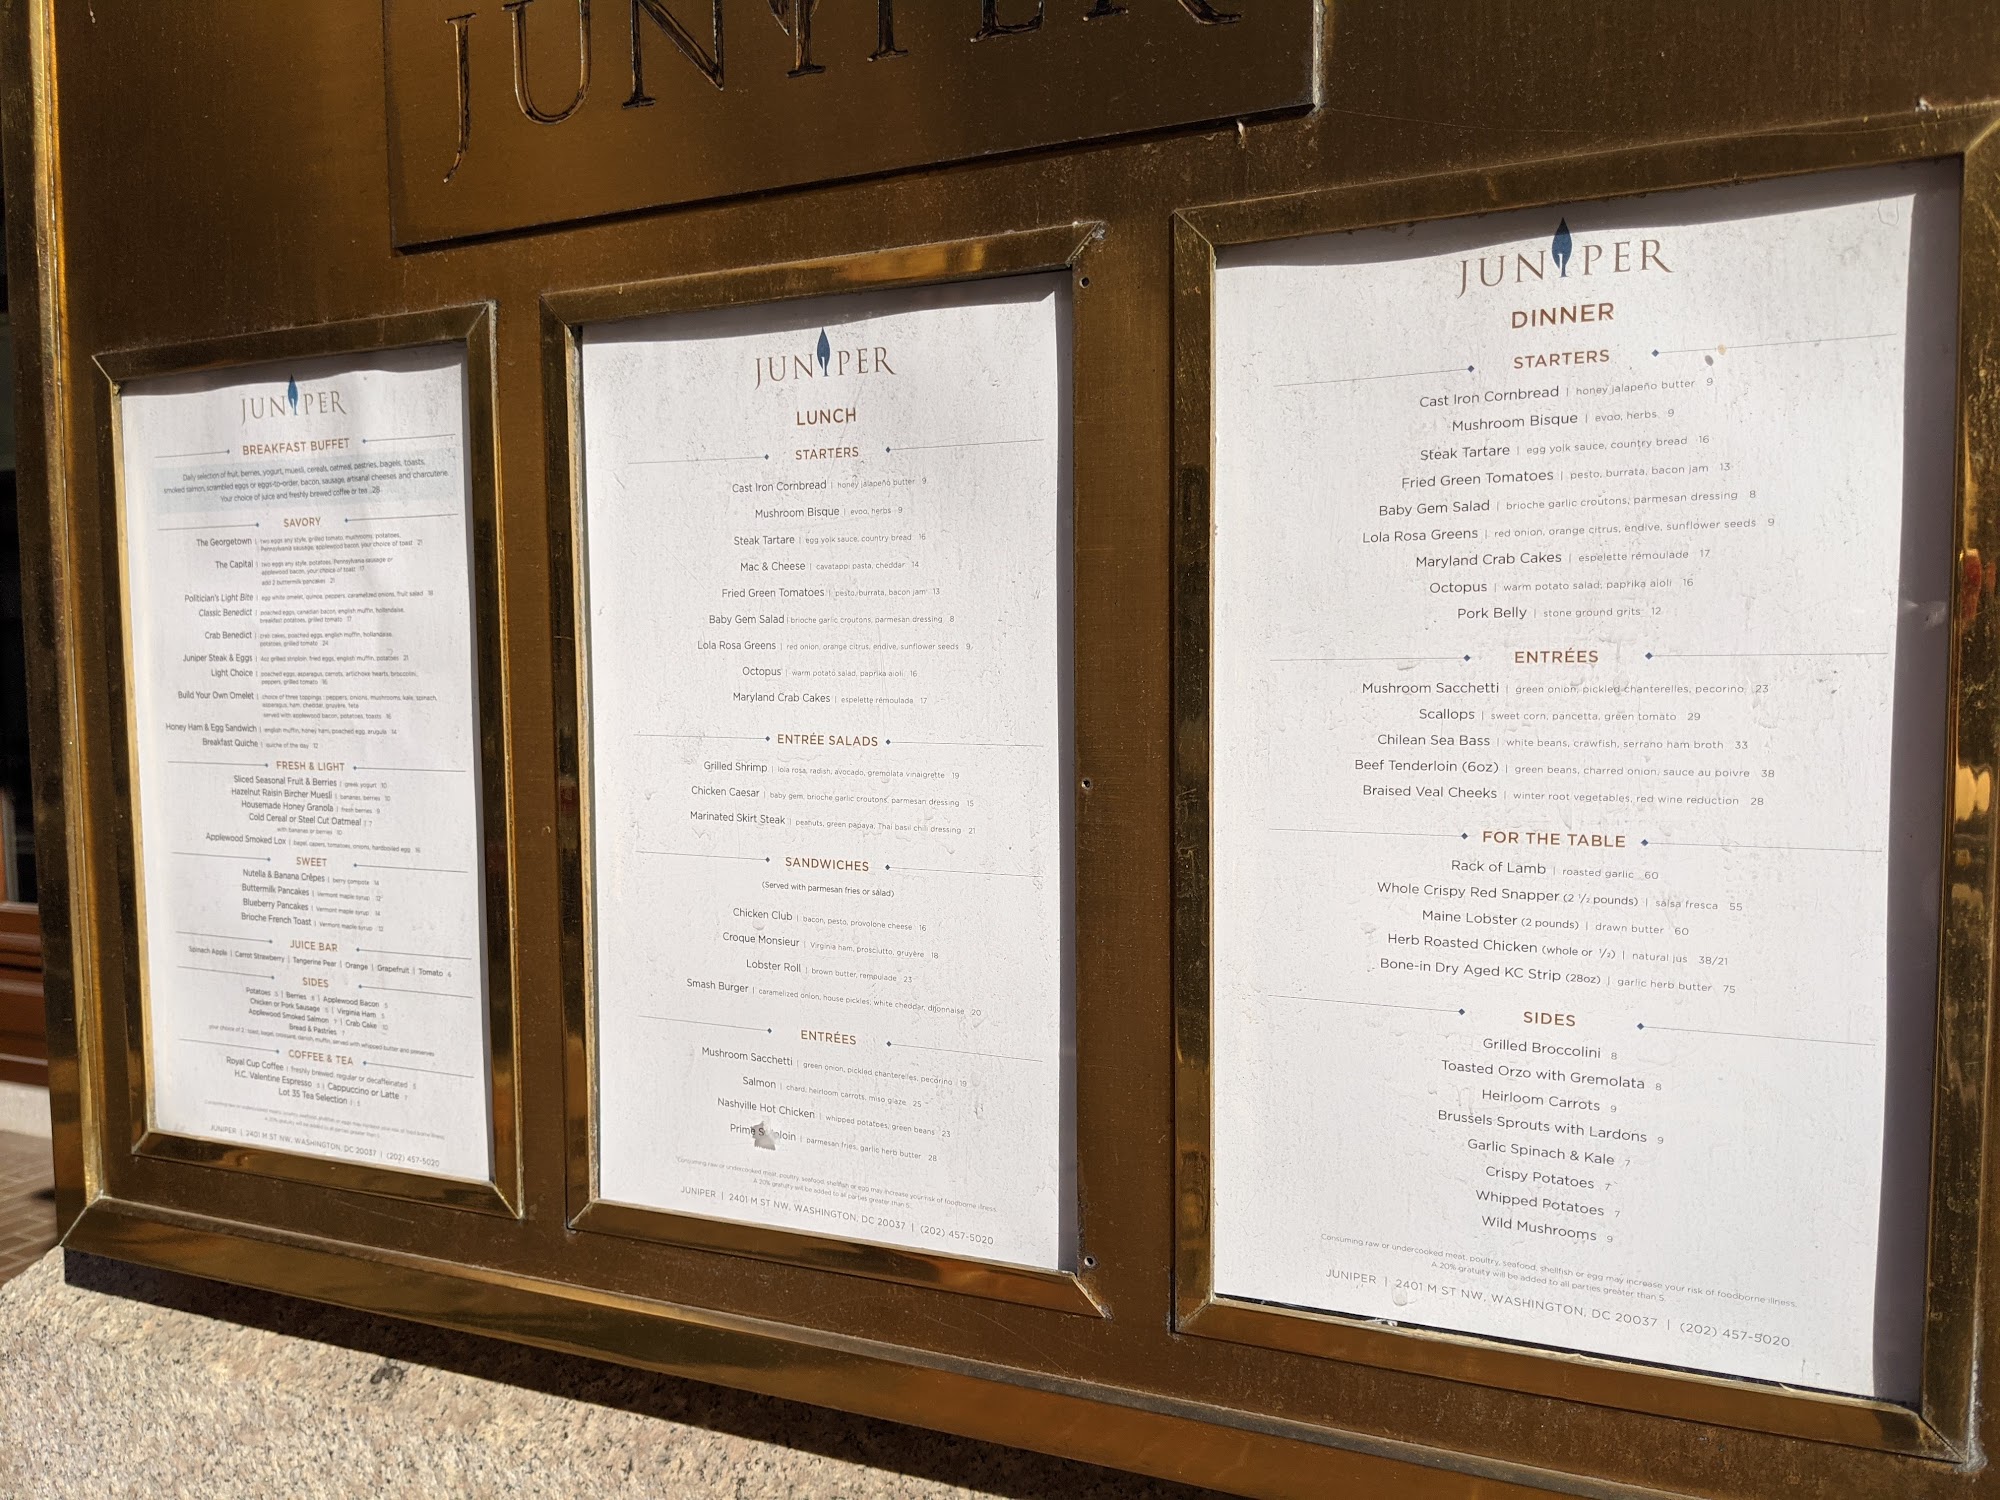 JUNIPER
JUNIPER
BREAKFAST BUFFET
Daily selection of fruit, berries, yogurt, muesli, cereals, oatmeal, pastries, bagels, toasts,
smoked salmon, scrambled eggs or eggs-to-order, bacon, sausage, artisanal cheeses and charcuterie.
Your choice of juice and freshly brewed coffee or tea 28
SAVORY
The Georgetown | two eggs any style, grilled tomato, mushrooms, potatoes,
Pennsylvania sausage, applewood bacon, your choice of toast 21
The Capital | two eggs any style, potatoes, Pennsylvania sausage or
applewood bacon, your choice of toast 17
add 2 buttermilk pancakes 21
Politician's Light Bite | egg white omelet, quinoa, peppers, caramelized onions, fruit salad 18
Classic Benedict | poached eggs, canadian bacon, english muffin, hollandaise,
breakfast potatoes, grilled tomato 17
Crab Benedict | crab cakes, poached eggs, english muffin, hollandaise,
potatoes, grilled tomato 24
Juniper Steak & Eggs | 4oz grilled striploin, fried eggs, english muffin, potatoes 21
Light Choice | poached eggs, asparagus, carrots, artichoke hearts, broccolini,
peppers, grilled tomato 16
Build Your Own Omelet | choice of three toppings: peppers, onions, mushrooms, kale, spinach,
asparagus, ham, cheddar, gruyère, feta
served with applewood bacon, potatoes, toasts 16
Honey Ham & Egg Sandwich | english muffin, honey ham, poached egg, arugula 14
Breakfast Quiche | quiche of the day 12
FRESH & LIGHT
Sliced Seasonal Fruit & Berries | greek yogurt 10
Hazelnut Raisin Bircher Muesli | bananas, berries 10
Housemade Honey Granola | fresh berries 9
Cold Cereal or Steel Cut Oatmeal | 7
with bananas or berries 10
Applewood Smoked Lox | bagel, capers, tomatoes, onions, hardboiled egg 16
SWEET
Nutella & Banana Crêpes | berry compote 14
Buttermilk Pancakes | Vermont maple syrup 12
Blueberry Pancakes | Vermont maple syrup 14
Brioche French Toast | Vermont maple syrup 12
JUICE BAR
Spinach Apple | Carrot Strawberry | Tangerine Pear | Orange | Grapefruit | Tomato 6
SIDES
Potatoes 5 | Berries 8 | Applewood Bacon 5
Chicken or Pork Sausage 5 | Virginia Ham 5
Applewood Smoked Salmon 7 | Crab Cake 10
Bread & Pastries 7
your choice of 2: toast, bagel, croissant, danish, muffin, served with whipped butter and preserves
COFFEE & TEA
Royal Cup Coffee | freshly brewed: regular or decaffeinated 5
H.C. Valentine Espresso 5 | Cappuccino or Latte 7
Lot 35 Tea Selection |
Consuming raw or undercooked meat, poultry, seafood, shellfish or egg may increase your risk of foodborne illness.
A 20% gratuity will be added to all parties greater than 5.
JUNIPER | 2401 M ST NW, WASHINGTON, DC 20037 | (202) 457-5020
JUNIPER
LUNCH
STARTERS
Cast Iron Cornbread | honey jalapeño butter 9
Mushroom Bisque | evoo, herbs 9
Steak Tartare | egg yolk sauce, country bread 16
Mac & Cheese | cavatappi pasta, cheddar 14
Fried Green Tomatoes | pesto, burrata, bacon jam 13
Baby Gem Salad | brioche garlic croutons, parmesan dressing 8
Lola Rosa Greens | red onion, orange citrus, endive, sunflower seeds 9
Octopus | warm potato salad, paprika aioli 16
Maryland Crab Cakes | espelette rémoulade 17
ENTRÉE SALADS
Grilled Shrimp | lola rosa, radish, avocado, gremolata vinaigrette 19
Chicken Caesar | baby gem, brioche garlic croutons, parmesan dressing 15
Marinated Skirt Steak | peanuts, green papaya, Thai basil chili dressing 21
SANDWICHES
(Served with parmesan fries or salad)
Chicken Club | bacon, pesto, provolone cheese 16
Croque Monsieur | Virginia ham, prosciutto, gruyère 18
Lobster Roll | brown butter, remoulade 23
Smash Burger | caramelized onion, house pickles, white cheddar, dijonnaise 20
ENTRÉES
Mushroom Sacchetti | green onion, pickled chanterelles, pecorino 19
Salmon | chard, heirloom carrots, miso glaze 25
Nashville Hot Chicken | whipped potatoes, green beans 23
Prime S loin | parmesan fries, garlic herb butter 28
Consuming raw or undercooked meat, poultry, seafood, shellfish or egg may increase your risk of foodborne illness.
A 20% gratuity will be added to all parties greater than 5.
JUNIPER | 2401 M ST NW, WASHINGTON, DC 20037 | (202) 457-5020
JUNIPER
DINNER
STARTERS
Cast Iron Cornbread | honey jalapeño butter 9
Mushroom Bisque | evoo, herbs 9
Steak Tartare | egg yolk sauce, country bread 16
Fried Green Tomatoes | pesto, burrata, bacon jam 13
Baby Gem Salad | brioche garlic croutons, parmesan dressing 8
Lola Rosa Greens | red onion, orange citrus, endive, sunflower seeds 9
Maryland Crab Cakes | espelette rémoulade 17
Octopus | warm potato salad, paprika aioli 16
Pork Belly | stone ground grits 12
ENTRÉES
Mushroom Sacchetti | green onion, pickled chanterelles, pecorino 23
Scallops | sweet corn, pancetta, green tomato 29
Chilean Sea Bass | white beans, crawfish, serrano ham broth 33
Beef Tenderloin (6oz) | green beans, charred onion, sauce au poivre 38
Braised Veal Cheeks | winter root vegetables, red wine reduction 28
FOR THE TABLE
Rack of Lamb | roasted garlic 60
Whole Crispy Red Snapper (2 1/2 pounds) | salsa fresca 55
Maine Lobster (2 pounds) | drawn butter 60
Herb Roasted Chicken (whole or 1/2) | natural jus 38/21
Bone-in Dry Aged KC Strip (28oz) | garlic herb butter 75
SIDES
Grilled Broccolini 8
Toasted Orzo with Gremolata 8
Heirloom Carrots 9
Brussels Sprouts with Lardons 9
Garlic Spinach & Kale 7
Crispy Potatoes 7
Whipped Potatoes 7
Wild Mushrooms 9
Consuming raw or undercooked meat, poultry, seafood, shellfish or egg may increase your risk of foodborne illness.
A 20% gratuity will be added to all parties greater than 5.
JUNIPER | 2401 M ST NW, WASHINGTON, DC 20037 | (202) 457-5020